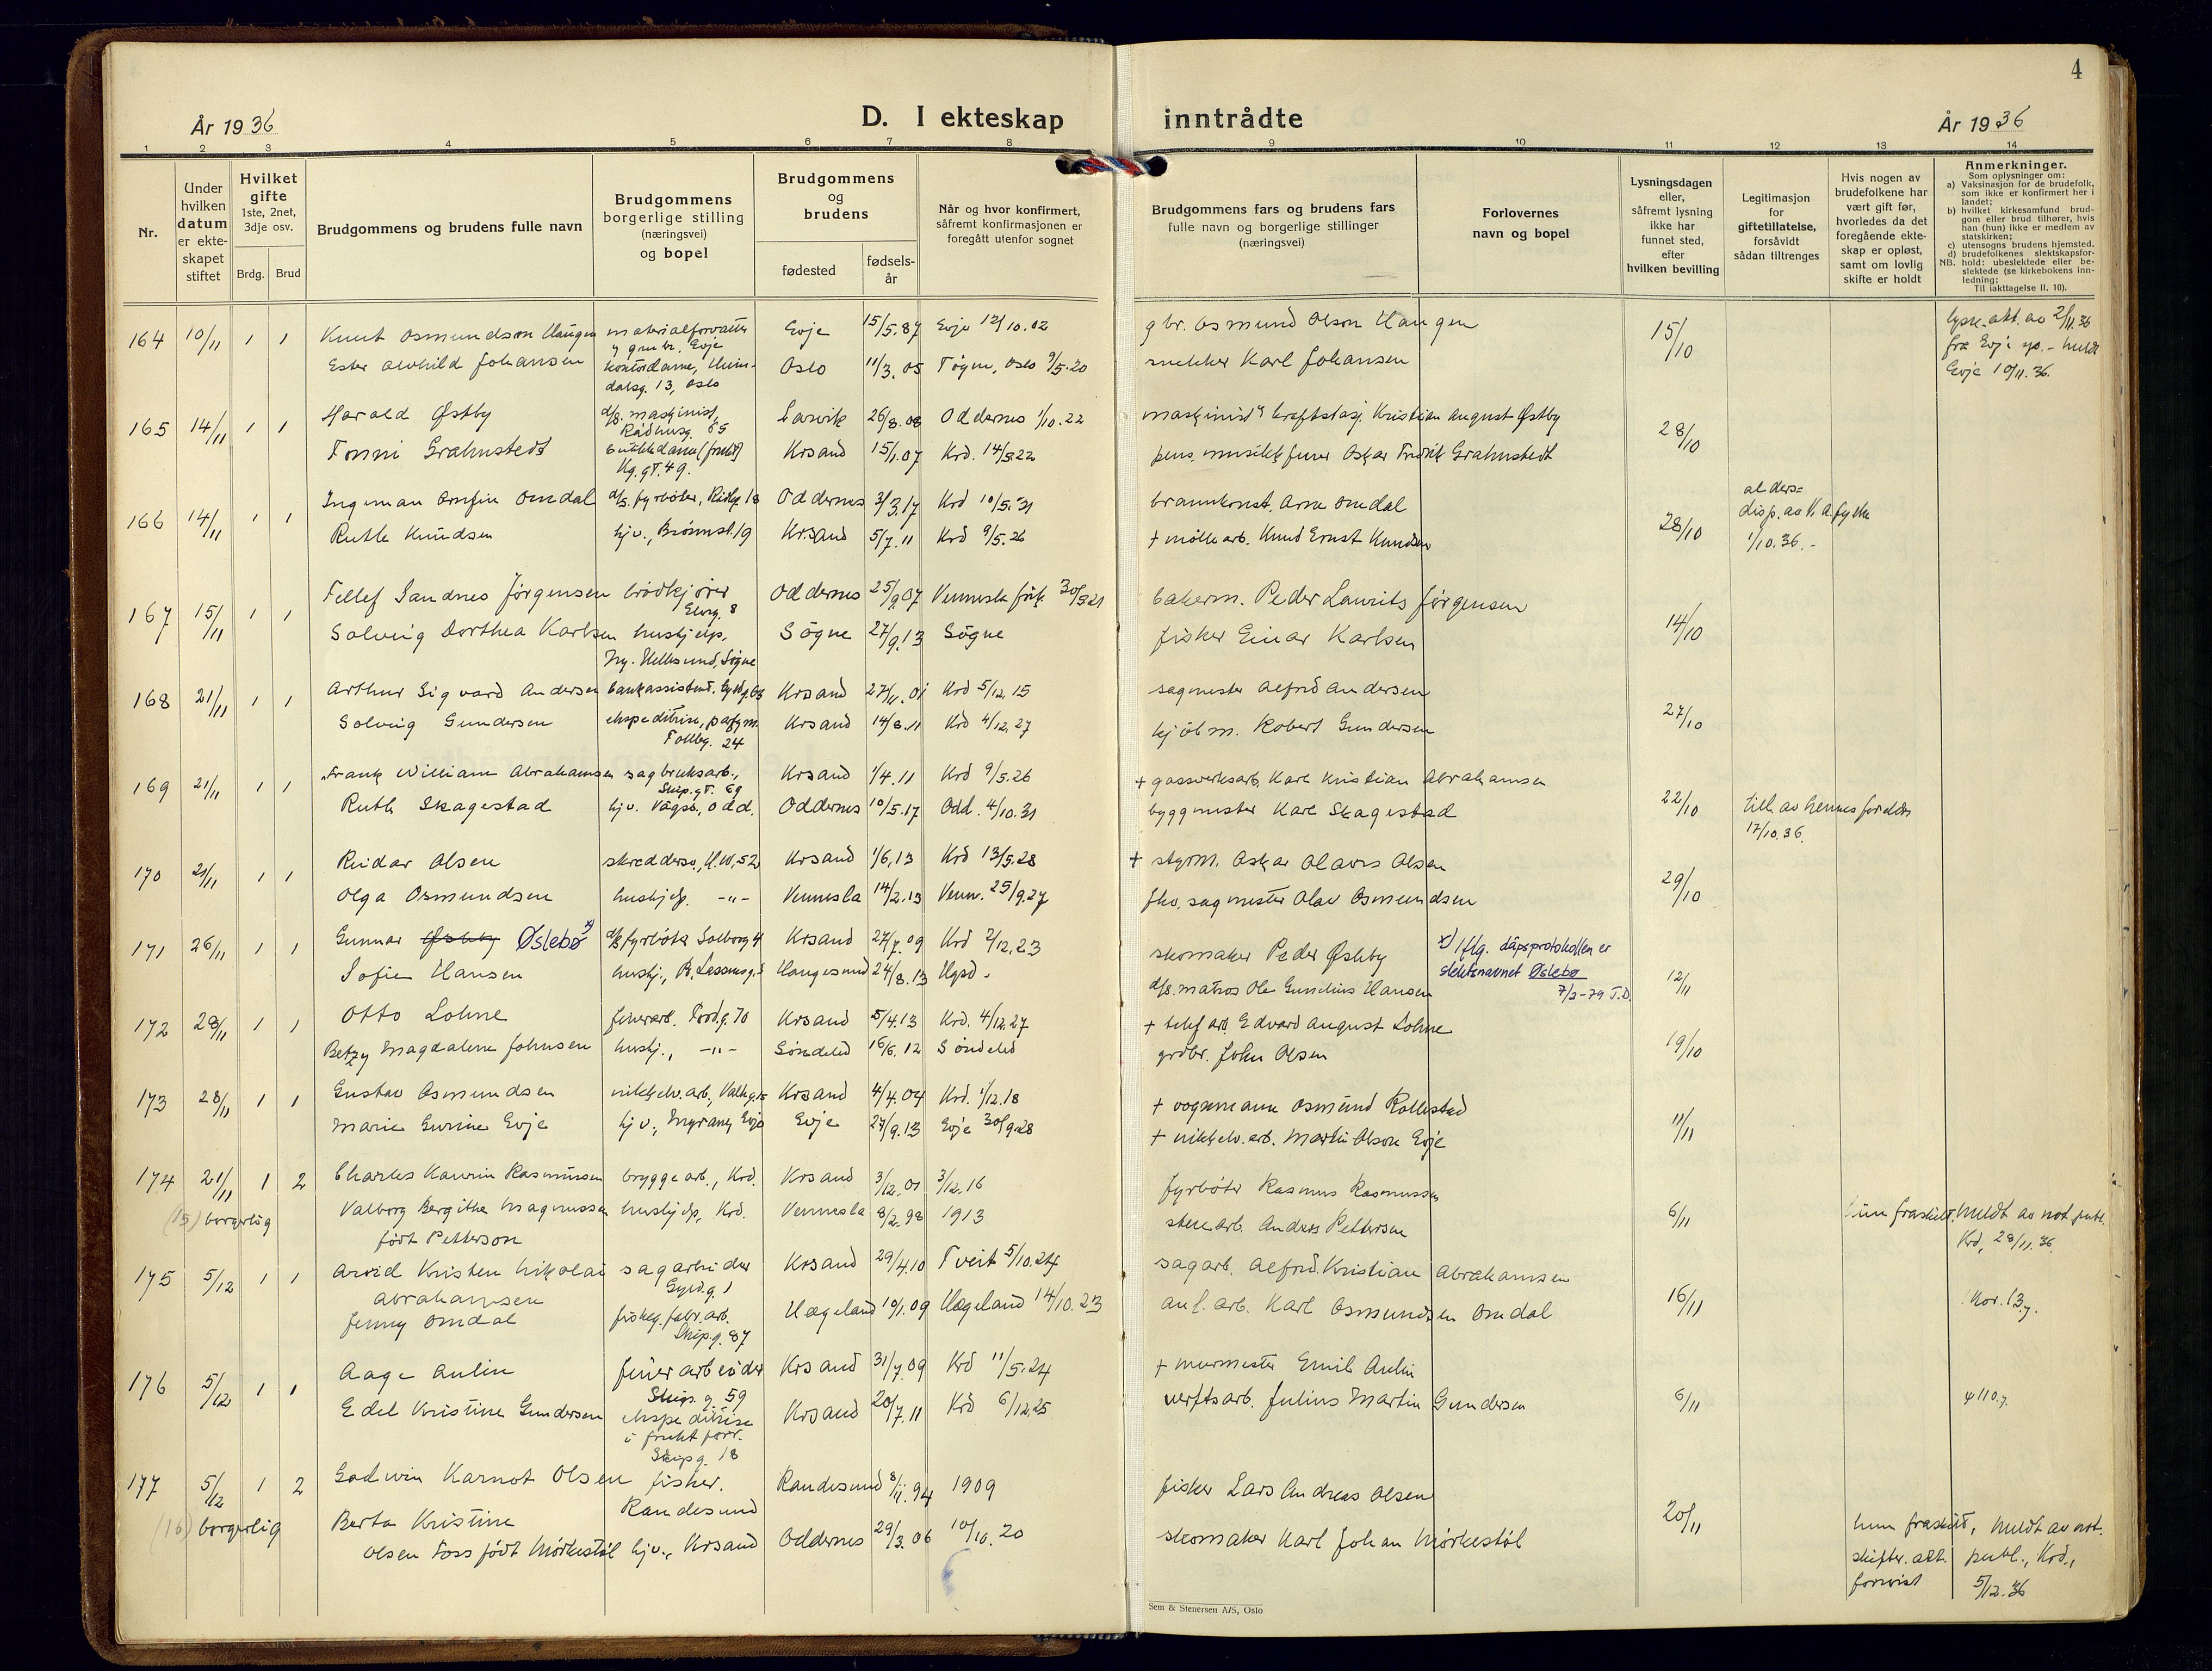 4
År 1936
D. I ekteskap
inntrådte
År 1936
1 2 3 4 5 6 7 8 9 10 11 12 13 14
Nr.
Under hvilken datum er ekteskapet stiftet
Hvilket gifte
1ste, 2net, 3dje osv.
Brdg. Brud
Brudgommens og brudens fulle navn
Brudgommens borgerlige stilling (næringsvei) og bopel
Brudgommens og brudens
fødested
fødselsår
Når og hvor konfirmert, såfremt konfirmasjonen er foregått utenfor sognet
Brudgommens fars og brudens fars fulle navn og borgerlige stillinger (næringsvei)
Forlovernes navn og bopel
Lysningsdagen eller, såfremt lysning ikke har funnet sted, efter hvilken bevilling
Legitimasjon for giftetillatelse, forsåvidt sådan tiltrenges
Hvis nogen av brudefolkene har vært gift før, hvorledes da det foregående ekteskap er opløst, samt om lovlig skifte er holdt
Anmerkninger.
Som oplysninger om:
a) Vaksinasjon for de brudefolk, som ikke er konfirmert her i landet;
b) hvilket kirkesamfund brudgom eller brud tilhører, hvis han (hun) ikke er medlem av statskirken;
c) utensogns brudens hjemsted.
d) brudefolkenes slektskapsforhold: ubeslektede eller beslektede (se kirkebokens innledning;
NB. Til iakttagelse II. 10).
164 10/11 1 1 Knut Osmundson Haugen materialforvalter Evje 15/5.87 Evje 12/10.02 gbr. Osmund Olson Haugen 15/10 lysn.att. av 2/11.36
g. grubr. Evje fra Evje sp. - holdt
Ester Alvhild Johansen kontordame, Heimdalsg. 13, Oslo Oslo 11/3.05 Tøyen, Oslo 9/5.20 snekker Karl Johansen Evje 10/11.36.
165 14/11 1 1 Harald Østby d/s. maskinist, Rådhusg. 65 Larvik 26/8.08 Oddernes 1/10.22 maskinist v kraftstasj. Kristian August Østby 28/10
Tonni Grahnstedt butikkdame (frukt) Kg.gt. 49. Krsand 15/1.07 Krd. 14/5.22 pens. musikkfurer Oskar Fredrik Grahnstedt
166 14/11 1 1 Ingeman Arnfin Omdal d/s. fyrbøter, Oddernes 3/3.17 Krd 10/5.31 brannkonst. Arne Omdal 28/10 aldersdisp. av V. A. fylke
Ruth Knudsen hjv., Brönnst. 19 Krsand 5/7.11 Krd 9/5.26 + möllearb. Knud Ernst Knudsen 1/10.36.-
167 15/11 1 1 Tellef Sandnes Jörgensen brödkjører Elvg. 8 Oddernes 25/9.07 Vennesla 30/5.21 bakerm. Peder Laurits Jörgensen 14/10
Solveig Dorthea Karlsen hushjelp, Ny-Hellesund, Søgne Søgne 27/9.13 Søgne fisker Einar Karlsen
168 21/11 1 1 Arthur Sigvard Andersen bankassistent. Krsand 27/11.01 Krd 5/12.15 sagmester Alfred Andersen 27/10
Solveig Gundersen ekspeditrise, parfym. Tollbg. 24 Krsand 14/8.11 Krd 4/12.27 kjöbm. Robert Gundersen
169 21/11 1 1 Frank William Abrahamsen sagbruksarb., Skip.gt. 69 Krsand 1/4.11 Krd 9/5.26 + gassverksarb. Karl Kristian Abrahamsen 22/10 till. av hennes foreldre
Ruth Skagestad hjv. Vågsb., Odd. Oddernes 10/5.17 Odd. 4/10.31 byggmester Karl Skagestad 17/10.36.
170 21/11 1 1 Reidar Olsen skreddersv., H.W. 52 Krsand 1/6.13 Krd 13/5.28 + styrm. Oskar Olaves Olsen 29/10
Olga Osmundsen hushjelp. -"- Vennesla 14/2.13 Venn. 25/9.27 fhv. sagmester Olav Osmundsen
171 26/11 1 1 Gunnar Østeby Øslebø x) d/s fyrbøter Solborg 4 Krsand 27/7.09 Krd 2/12.23 skomaker Peder Østeby x) Iflg. dåpsprotokollen er slektsnavnet Øslebø 7/2-79 T.D. 12/11
Sofie Hansen hushj., Haugesund 24/8.13 Hgsd - d/s. matros Ole Gunelius Hansen
172 28/11 1 1 Otto Lohne finerarb. Tord.g. 70 Krsand 5/4.13 Krd. 4/12.27 + telef arb. Edvard August Lohne 19/10
Betzy Magdalene Johnsen hushj., -"- Søndeled 16/6.12 Söndeled grdbr. John Olsen
173 28/11 1 1 Gustav Osmundsen nikkelv.arb., Krsand 4/4.04 Krd. 1/12.18 + vognmann Osmund Rollestad 11/11
Marie Gurine Evje hjv., Myrang Evje Evje 27/9.13 Evje 30/9.28 + nikkelv.arb. Martin Olson Evje
174 21/11 1 2 Charles Kaurin Rasmussen bryggearb., Krd. Krsand 3/12.01 3/12.16 fyrböter Rasmus Rasmussen 6/11
(15) borgerlig Valborg Bergithe Magnussen født Petterson hushjelp, Krd. Vennesla 8/2.98 1913 stenarb. Anders Pettersen hun fraskilt. holdt av not. publ. Krd, 28/11.36
175 5/12 1 1 Arvid Kristen Nikolai Abrahamsen sagarbeider Gyld.g. 1 Krsand 29/4.10 Tveit 5/10.24 sagarb. Alfred Kristian Abrahamsen 16/11 Kor. 13.7.
Jenny Omdal fiskeg. fabr. arb. Skip.g. 87 Hægeland 10/1.09 Hægeland 14/10.23 anl. arb. Karl Osmundsen Omdal
176 5/12 1 1 Aage Aulin finerarbeider Skips.g. 59 Krsand 31/7.09 Krd 11/5.24 + murmester Emil Aulin 6/11
Edel Kristine Gundersen ekspeditrise i frukt forr. Skipg. 18 Krsand 20/7.11 Krd 6/12.25 verftsarb. Julius Martin Gundersen ψ 110.7.
177 5/12 1 2 Godwin Karnot Olsen fisker. Randesund Randesund 8/11.94 1909 fisker Lars Andreas Olsen 20/11
(16) borgerlig Berta Kristine Olsen Foss født Mörkestøl hjv., Krsand Oddernes 29/3.06 10/10.20 skomaker Karl Johan Mörkestöl hun fraskilt, skifter. att. forevist holdt av not. publ., Krd., 5/12.36
Sem & Stenersen A/S, Oslo